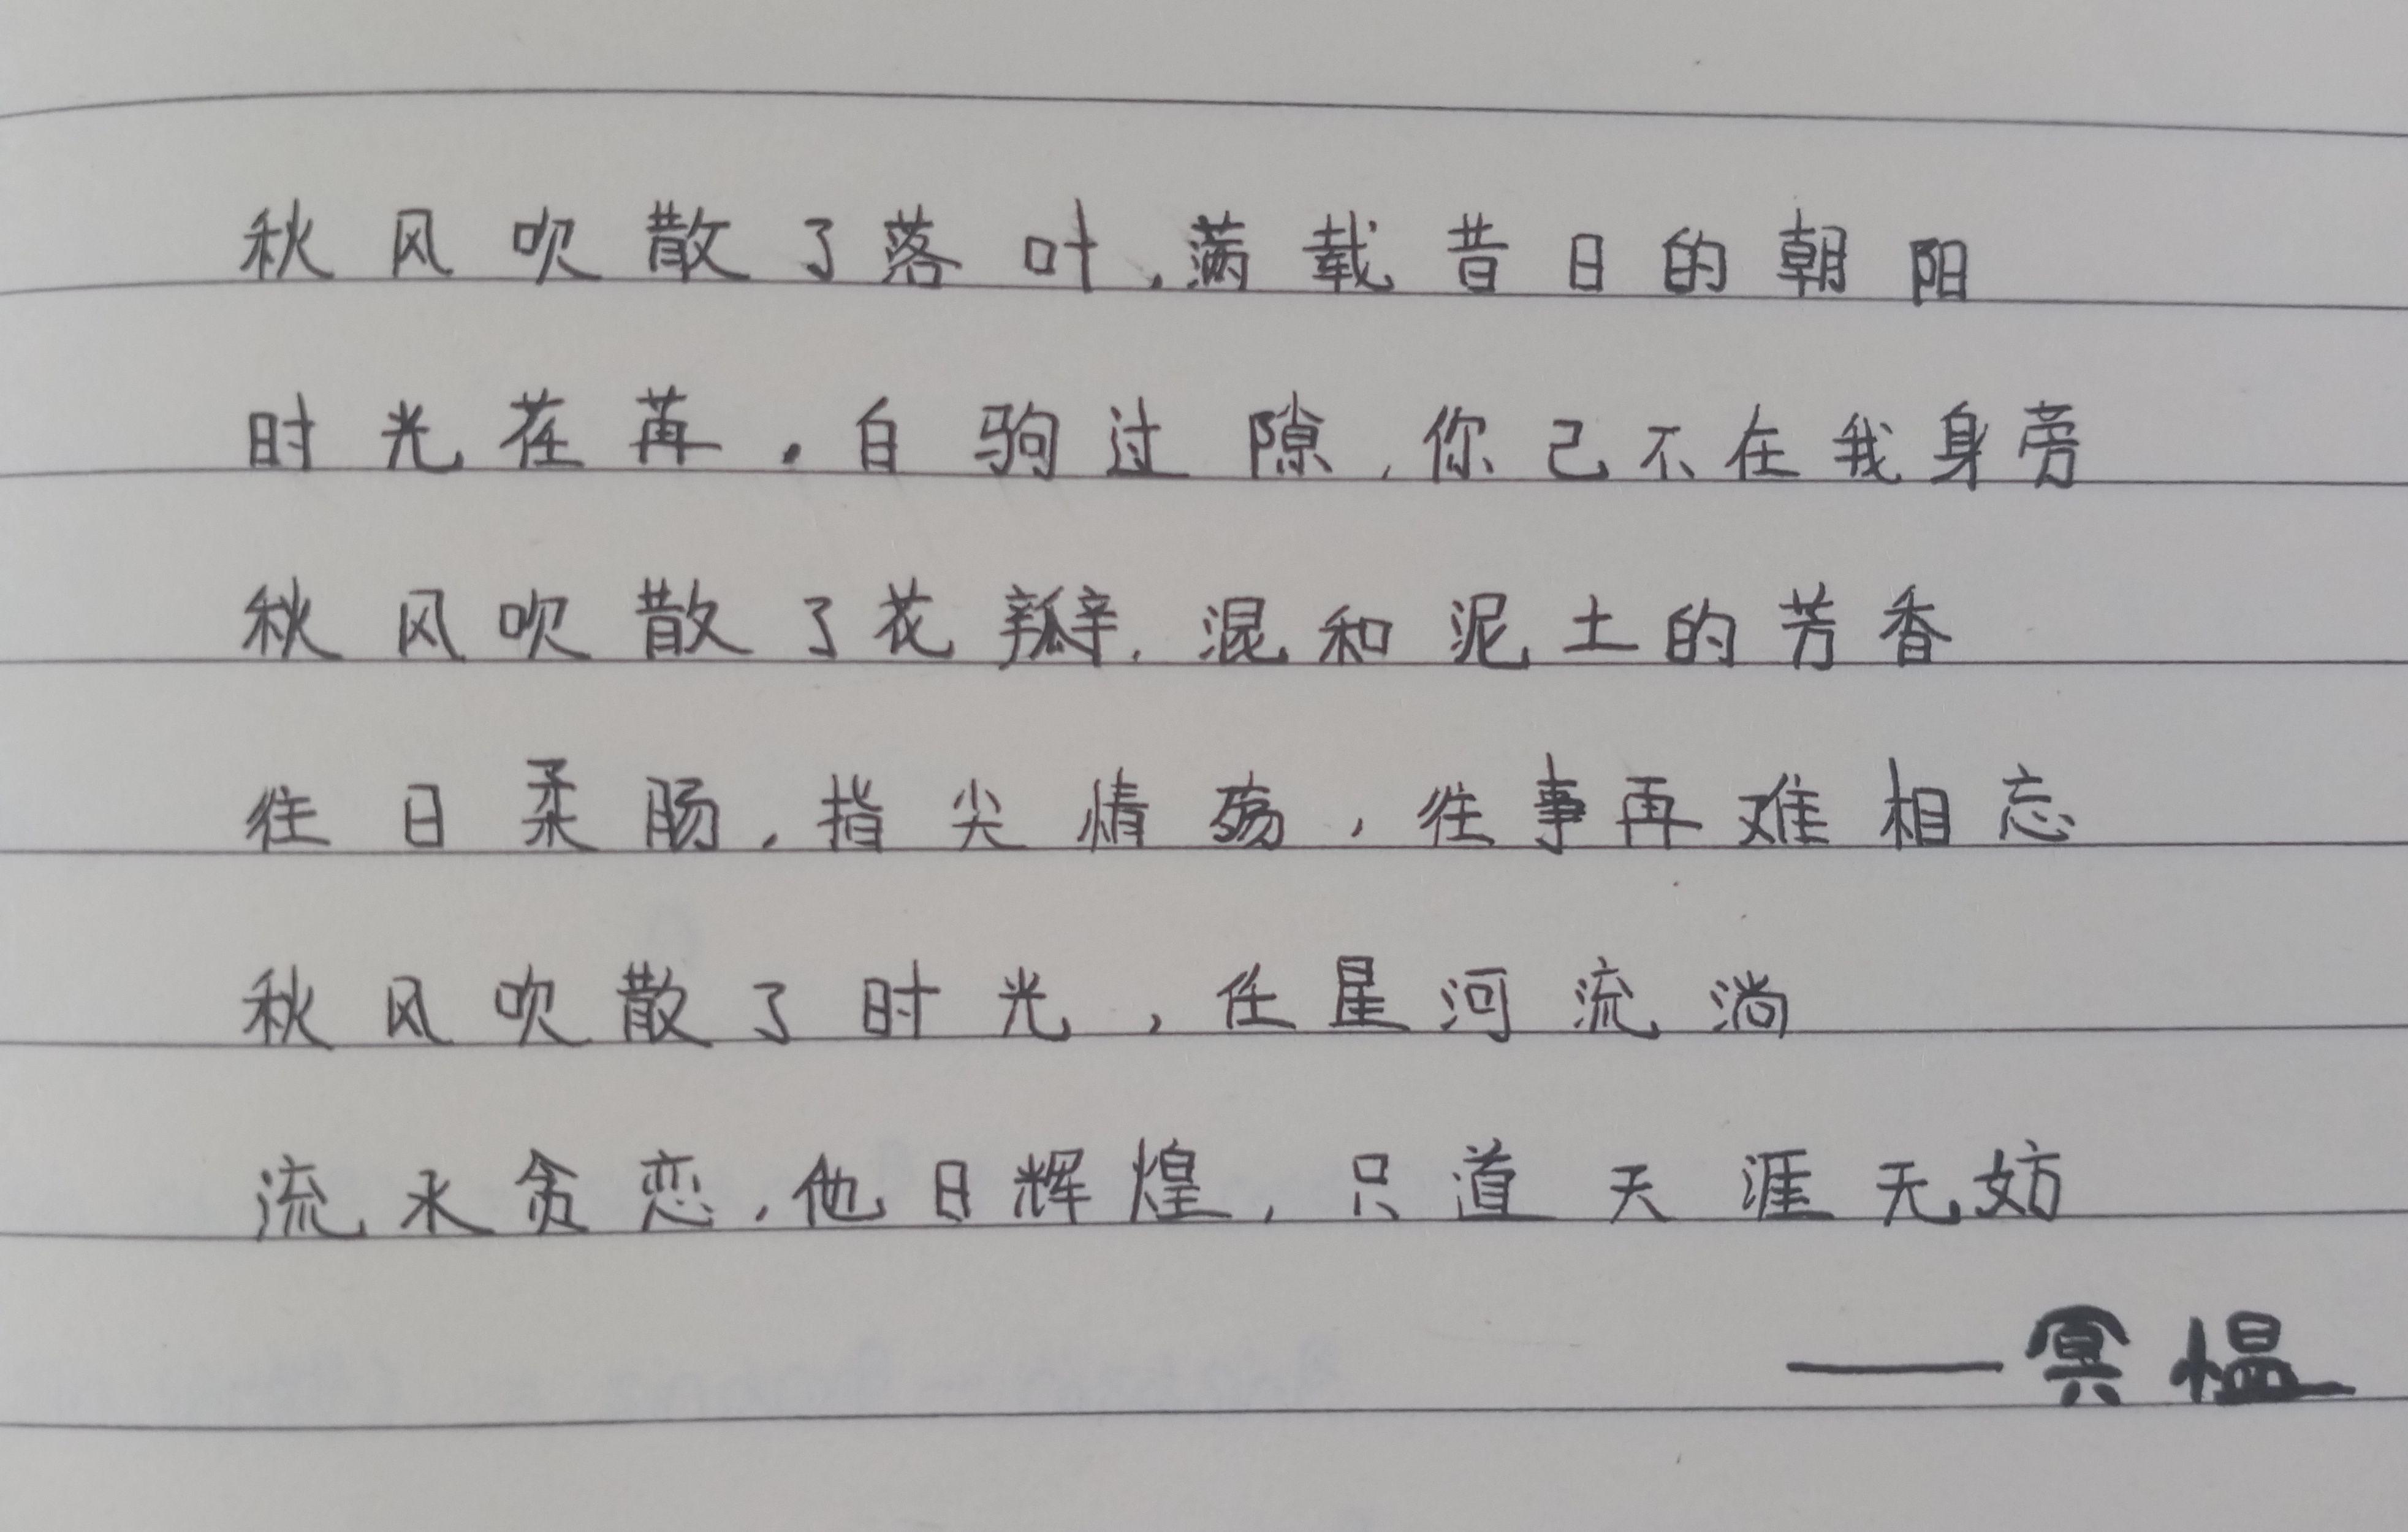 秋风吹散了落叶,满载昔日的朝阳
时光荏苒,白驹过隙,你已不在我身旁
秋风吹散了花瓣,混和泥土的芳香
往日柔肠,指尖情殇,往事再难相忘
秋风吹散了时光,任星河流淌
流水贪恋,他日辉煌,只道天涯无妨
——冥愠